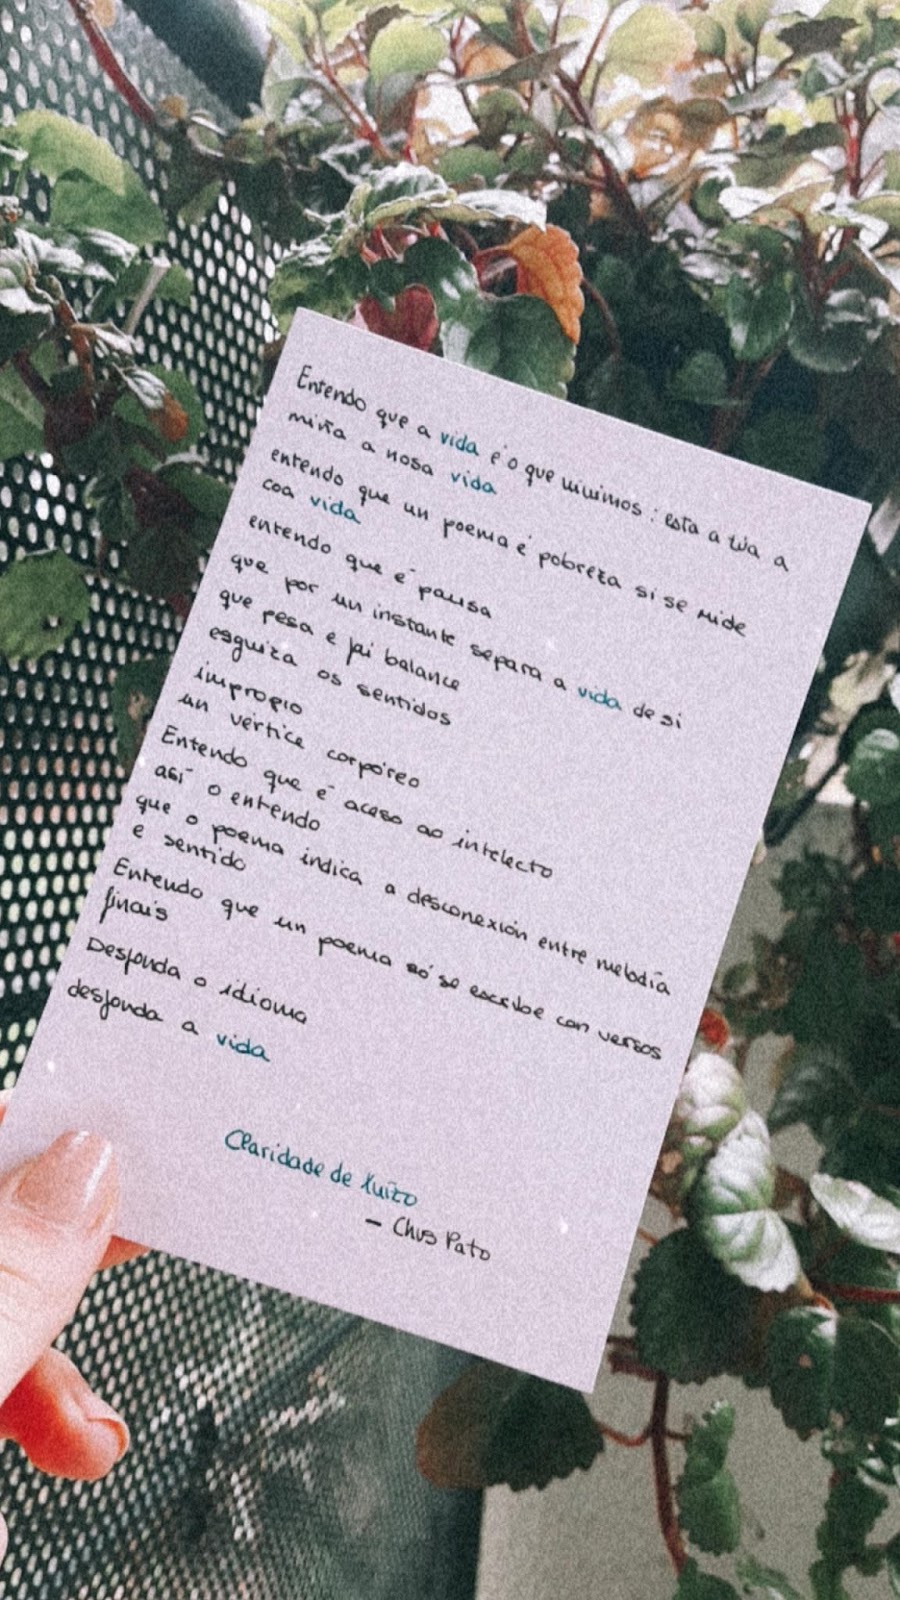 Entendo que a vida é o que vivimos: esta a túa a
miña a nosa vida
entendo que un poema é pobreza si se mide
coa vida
entendo que é pausa
que por un instante separa a vida de si
que pesa e fai balance
esguiza os sentidos
impropio
un vértice corpóreo
Entendo que é aceso ao intelecto
así o entendo
que o poema indica a desconexión entre melodía
e sentido
Entendo que un poema só se escribe con versos
finais
Desfonda o idioma
desfonda a vida
Claridade de Xuízo
- Chus Pato